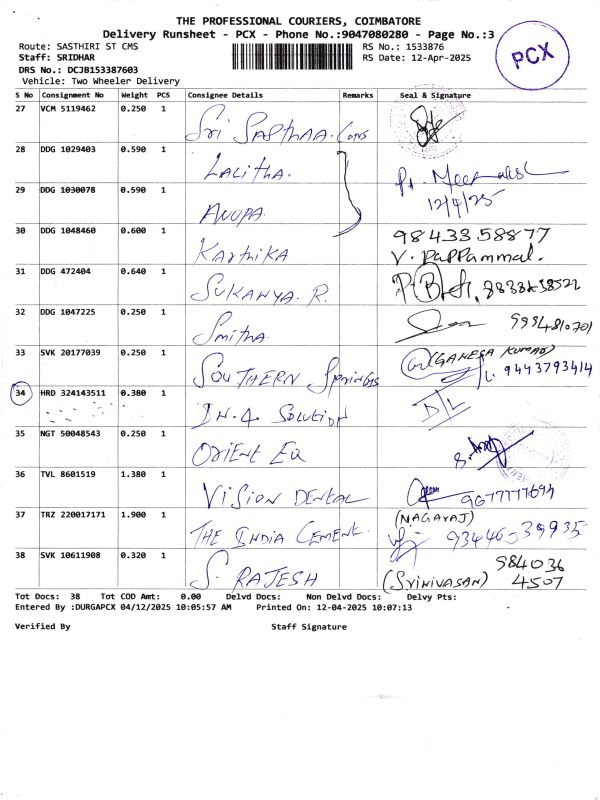 THE PROFESSIONAL COURIERS, COIMBATORE
Delivery Runsheet - PCX - Phone No.:9047080280 - Page No.:3
Route: SASTHIRI ST CMS RS No.: 1533876
Staff: SRIDHAR RS Date: 12-Apr-2025
DRS No.: DCJB153387603
Vehicle: Two Wheeler Delivery
PCX
S No Consignment No Weight PCS Consignee Details Remarks Seal & Signature
27 VCM 5119462 0.250 1 Sri Sapthaa. Cons
28 DDG 1029403 0.590 1 Lalitha.
12/4/25
29 DDG 1030078 0.590 1 Anupa.
30 DDG 1048460 0.600 1 Karthika 9843358877
V. Pappammal.
31 DDG 472404 0.640 1 Sukanya. R.
32 DDG 1047225 0.250 1 Smitha
33 SVK 20177039 0.250 1 Southern Springs (GANESA KUMAR)
9443793414
34 HRD 324143511 0.380 1 IN. 4. Solution D/L
35 NGT 50048543 0.250 1 Orient Ex
36 TVL 8601519 1.380 1 Vision Dental 9677777694
37 TRZ 220017171 1.900 1 The India Cement. (NAGARAJ)
93446-39935
38 SVK 10611908 0.320 1 S. RAJESH (Srinivasan) 984036
4507
Tot Docs: 38 Tot COD Amt: 0.00 Delvd Docs: Non Delvd Docs: Delvy Pts:
Entered By :DURGAPCX 04/12/2025 10:05:57 AM Printed On: 12-04-2025 10:07:13
Verified By Staff Signature